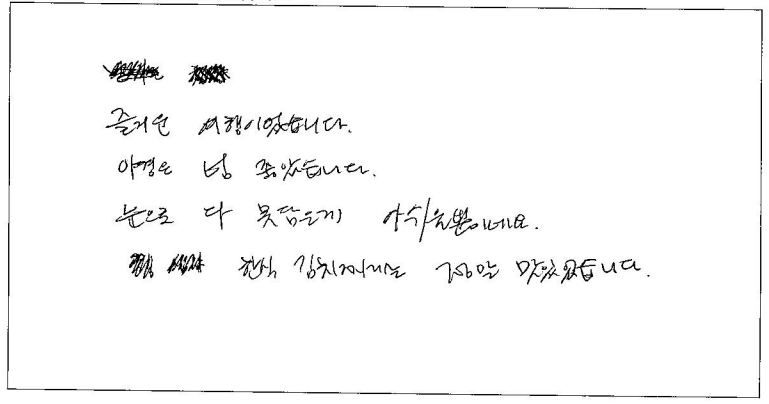 즐거운 여행이었습니다.
야경은 넘 좋았습니다.
눈으로 다 못담은게 아쉬울뿐이네요.
한식 김치찌개는 정말 맛있었습니다.